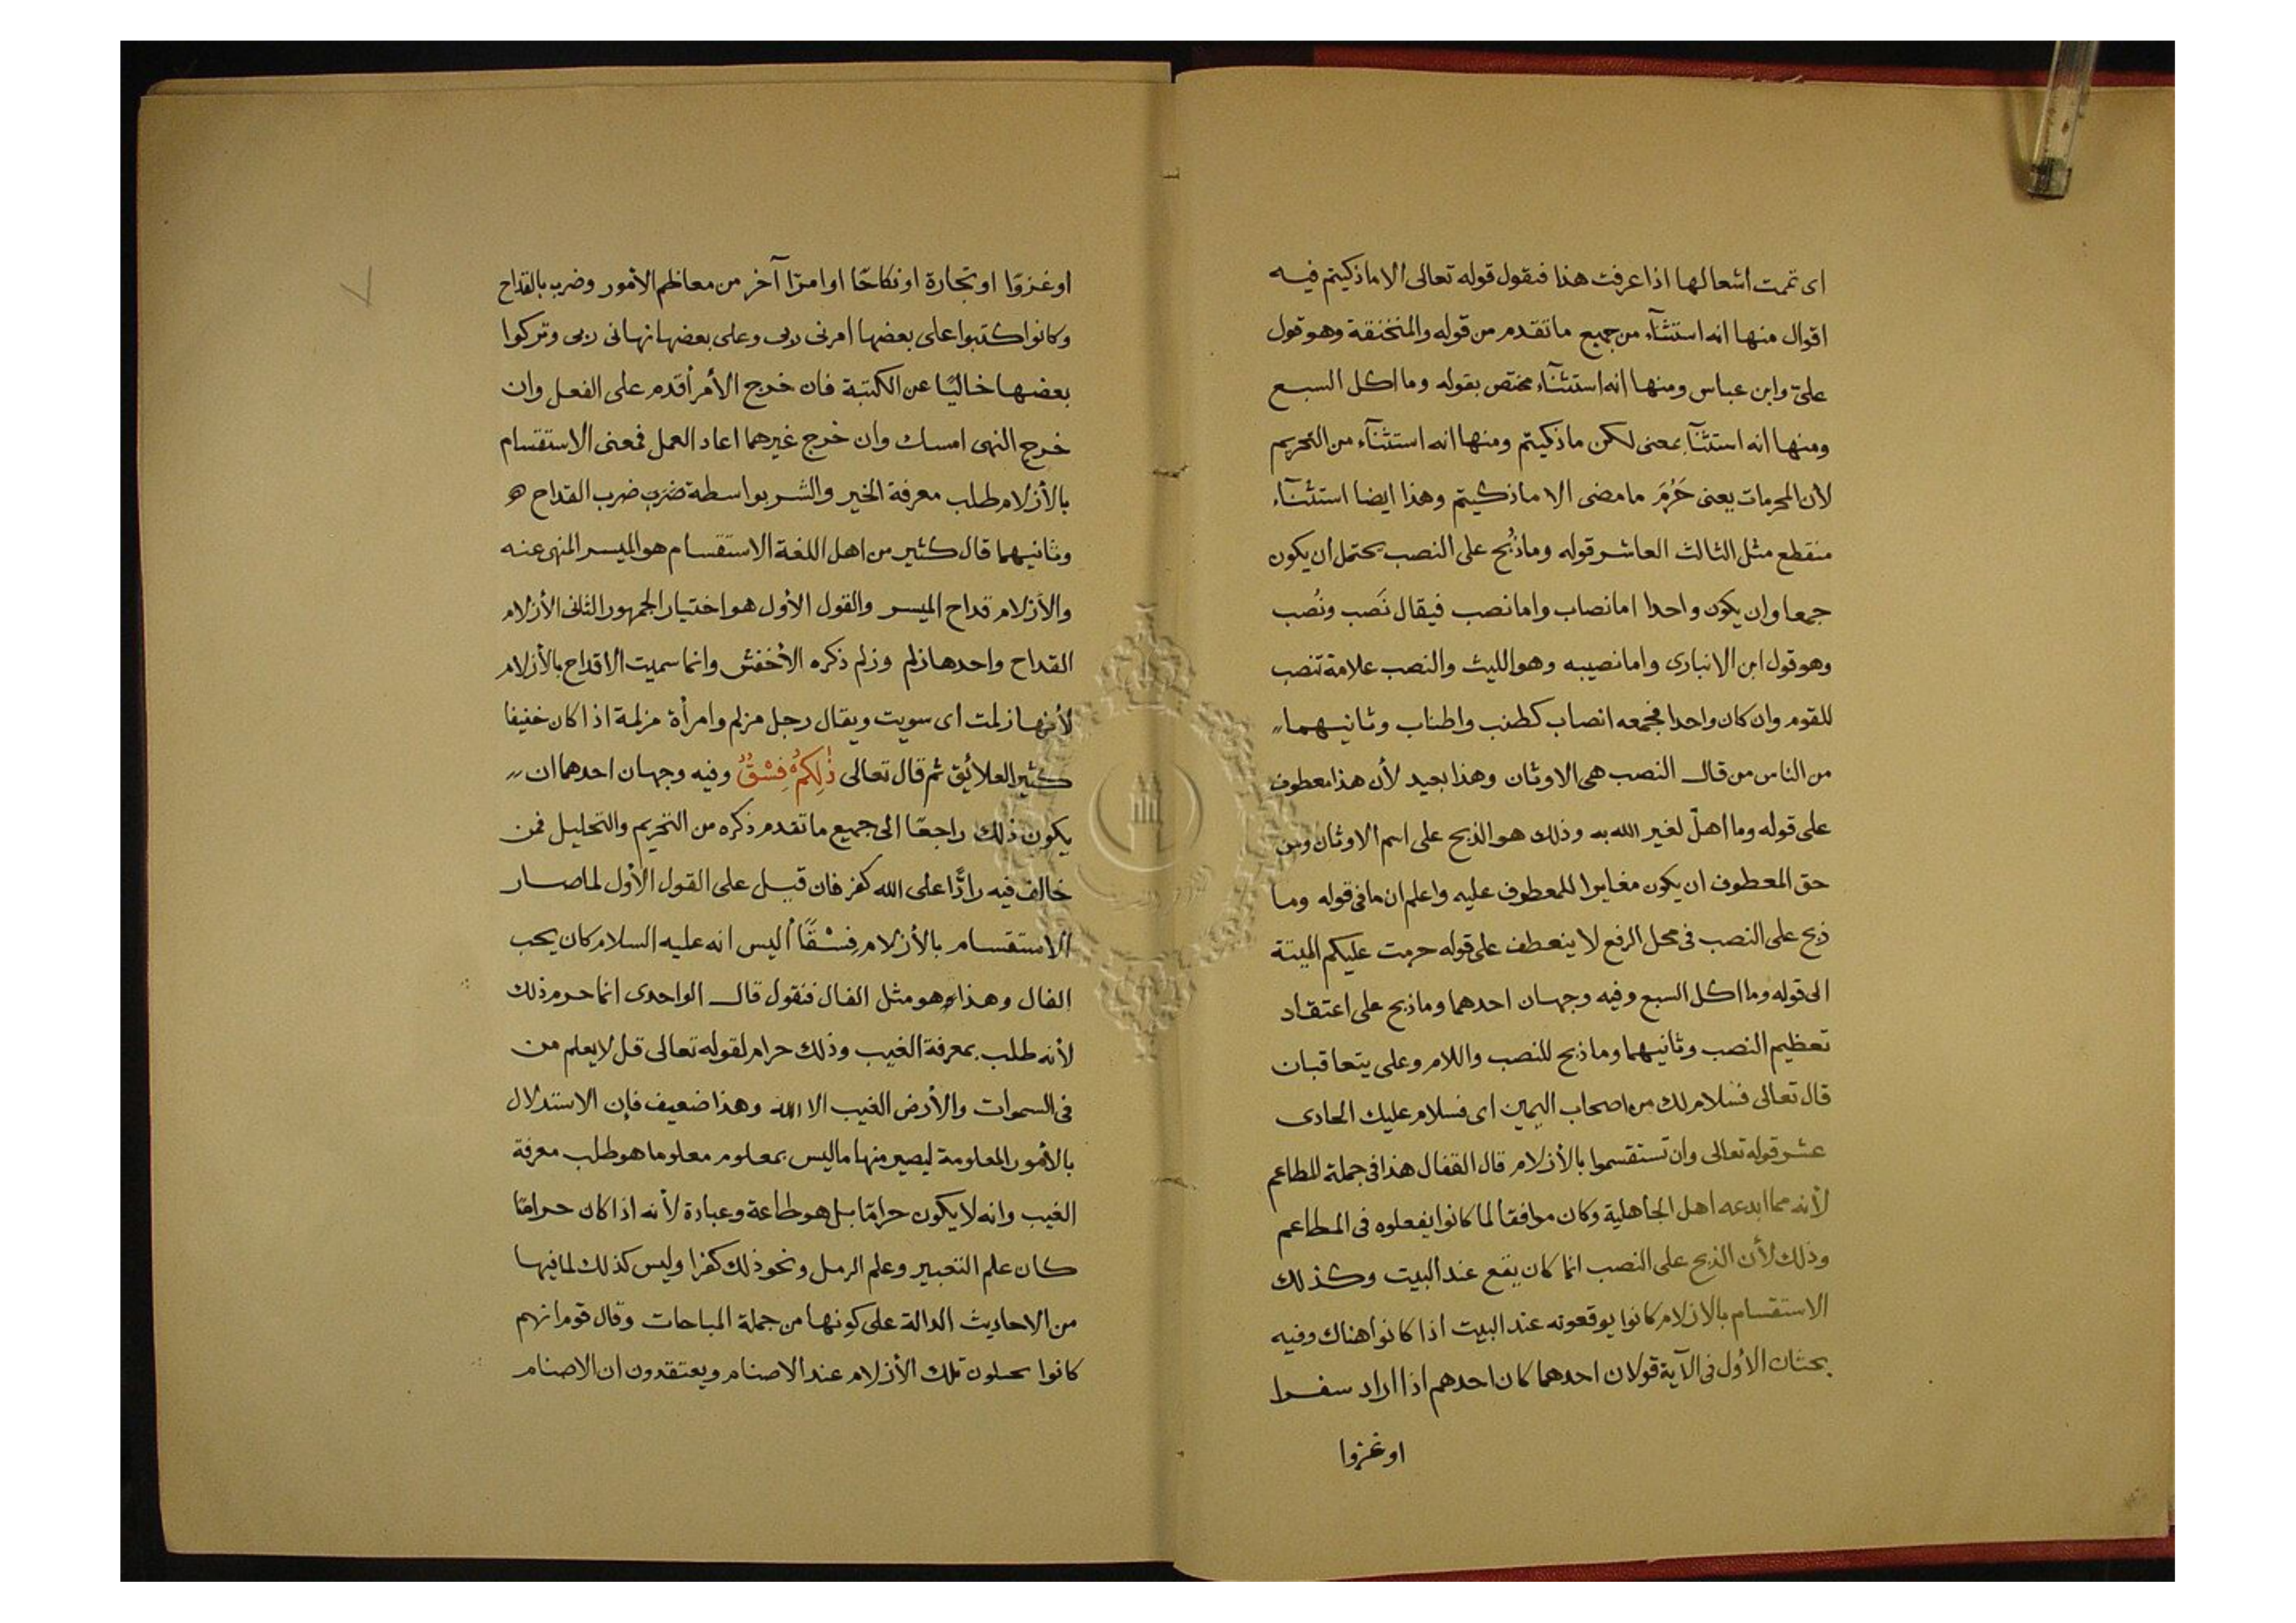 اى تمت اشعالها اذا عرفت هذا فنقول قوله تعالى الا ما ذكيتم فيه
اقوال منها انه استثنآء من جميع ما تقدم من قوله والمنخنقة وهو قول
علىّ وابن عباس ومنها انه استثنآء مختص بقوله وما اكل السبع
ومنها انه استثنآء بمعنى لكن ما ذكيتم ومنها انه استثنآء من التحريم
لأن المحرمات يعنى حَرُمَ ما مضى الا ما ذكيتم وهذا ايضا استثنآء
منقطع مثل الثالث العاشر قوله وما ذُبح على النصب يحتمل ان يكون
جمعا وان يكون واحدا اما نصاب واما نصب فيقال نَصب ونُصب
وهو قول ابن الانبارى واما نصيبه وهو الليث والنصب علامة تنصب
للقوم وان كان واحدا فجمعه انصاب كطنب واطناب وثانيهما
من الناس من قال النصب هى الاوثان وهذا بعيد لأن هذا معطوف
على قوله وما اهلّ لغير الله به وذلك هو الذبح على اسم الاوثان ومن
حق المعطوف ان يكون مغايرا للمعطوف عليه واعلم ان ما فى قوله وما
ذبح على النصب فى محل الرفع لا ينعطف على قوله حرمت عليكم الميتة
الى قوله وما اكل السبع وفيه وجهان احدهما وما ذبح على اعتقاد
تعظيم النصب وثانيهما وما ذبح للنصب واللام وعلى يتعاقبان
قال تعالى فسلام لك من اصحاب اليمين اى فسلام عليك الحادى
عشر قوله تعالى وان تستقسموا بالأزلام قال القفال هذا فى جملة المطاعم
لأنه مما ابدعه اهل الجاهلية وكان موافقا لما كانوا يفعلوه فى المطاعم
وذلك لأن الذبح على النصب انما كان يقع عند البيت وكذلك
الاستقسام بالازلام كانوا يوقعونه عند البيت اذا كانوا هناك وفيه
بحثان الأول فى الآية قولان احدهما كان احدهم اذا اراد سفرا
او غزوا
او غزوّا او تجارة او نكاحًا او امرًا آخر من معاظم الأمور وضرب بالقداح
وكانوا كتبوا على بعضها امرنى ربى وعلى بعضها نهانى ربى وتركوا
بعضها خاليًا عن الكتبة فان خرج الأمر أقدم على الفعل وان
خرج النهى امسك وان خرج غيرهما اعاد العمل فمعنى الاستقسام
بالأزلام طلب معرفة الخير والشر بواسطة ضرب ضرب القداح هو
وثانيهما قال كثير من اهل اللغة الاستقسام هو الميسر المنهى عنه
والأزلام قداح الميسر والقول الأول هو اختيار الجمهور الثانى الأزلام
القداح واحدها زلم وزلم ذكره الأخفش وانما سميت الاقداح بالأزلام
لأنها زلمت اى سويت ويقال رجل مزلم وامرأة مزلمة اذا كان خفيفا
كثير العلائق ثم قال تعالى ذٰلِكُمْ فِسْقٌ وفيه وجهان احدهما ان
يكون ذلك راجعًا الى جميع ما تقدم ذكره من التحريم والتحليل فمن
خالف فيه رادًّا على الله كفر فان قيل على القول الأول لما صار
الاستقسام بالأزلام فِسْقًا أليس انه عليه السلام كان يحب
الفال وهذا وهو مثل الفال فنقول قال الواحدى انما حرم ذلك
لأنه طلب بمعرفة الغيب وذلك حرام لقوله تعالى قل لا يعلم من
فى السموات والأرض الغيب الا الله وهذا ضعيف فإن الاستدلال
بالأمور المعلومة ليصير منها ما ليس بمعلوم معلوما هو طلب معرفة
الغيب وانه لا يكون حرامًا بل هو طاعة وعبادة لأنه اذا كان حرامًا
كان علم التعبير وعلم الرمل ونحو ذلك كفرا وليس كذلك لما فيها
من الاحاديث الدالة على كونها من جملة المباحات وقال قوم انهم
كانوا يحيلون تلك الأزلام عند الاصنام ويعتقدون ان الاصنام